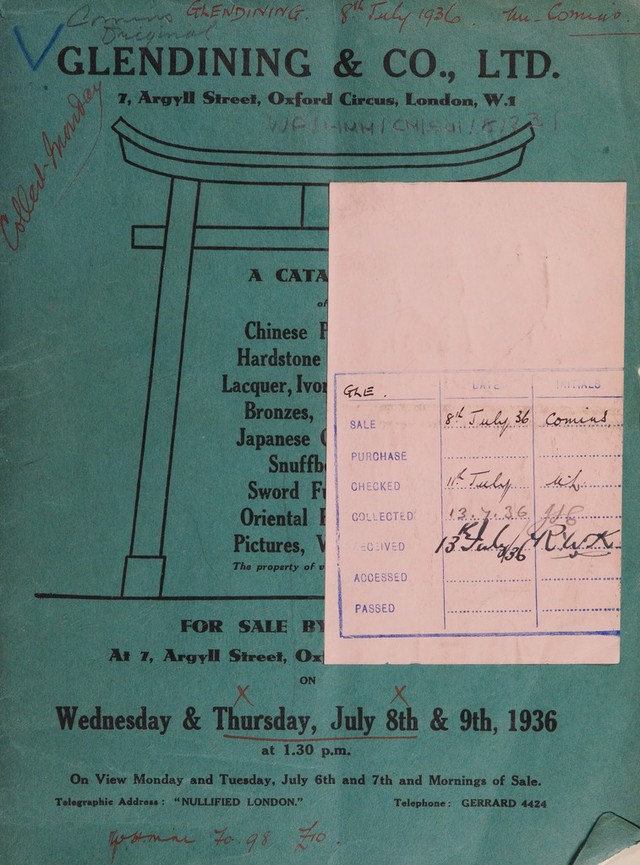 Comins GLENDINING. 8th July 1936. Mr. Comins.
Original
GLENDINING & CO., LTD.
7, Argyll Street, Oxford Circus, London, W.1
WA/HMM/CM/Sal/8/2 31
Collect Monday
A CATA
of
Chinese P
Hardstone
Lacquer, Ivor
Bronzes,
Japanese
Snuffb
Sword Fu
Oriental
Pictures, V
The property of v
GLE. DATE INITIALS
SALE 8th July 36 Comins.
PURCHASE
CHECKED 11th July
COLLECTED 13.7.36
RECEIVED 13th July 36
ACCESSED
PASSED
FOR SALE BY
At 7, Argyll Street, Ox
ON
Wednesday & Thursday, July 8th & 9th, 1936
at 1.30 p.m.
On View Monday and Tuesday, July 6th and 7th and Mornings of Sale.
Telegraphic Address: "NULLIFIED LONDON." Telephone: GERRARD 4424
to 98 £10.